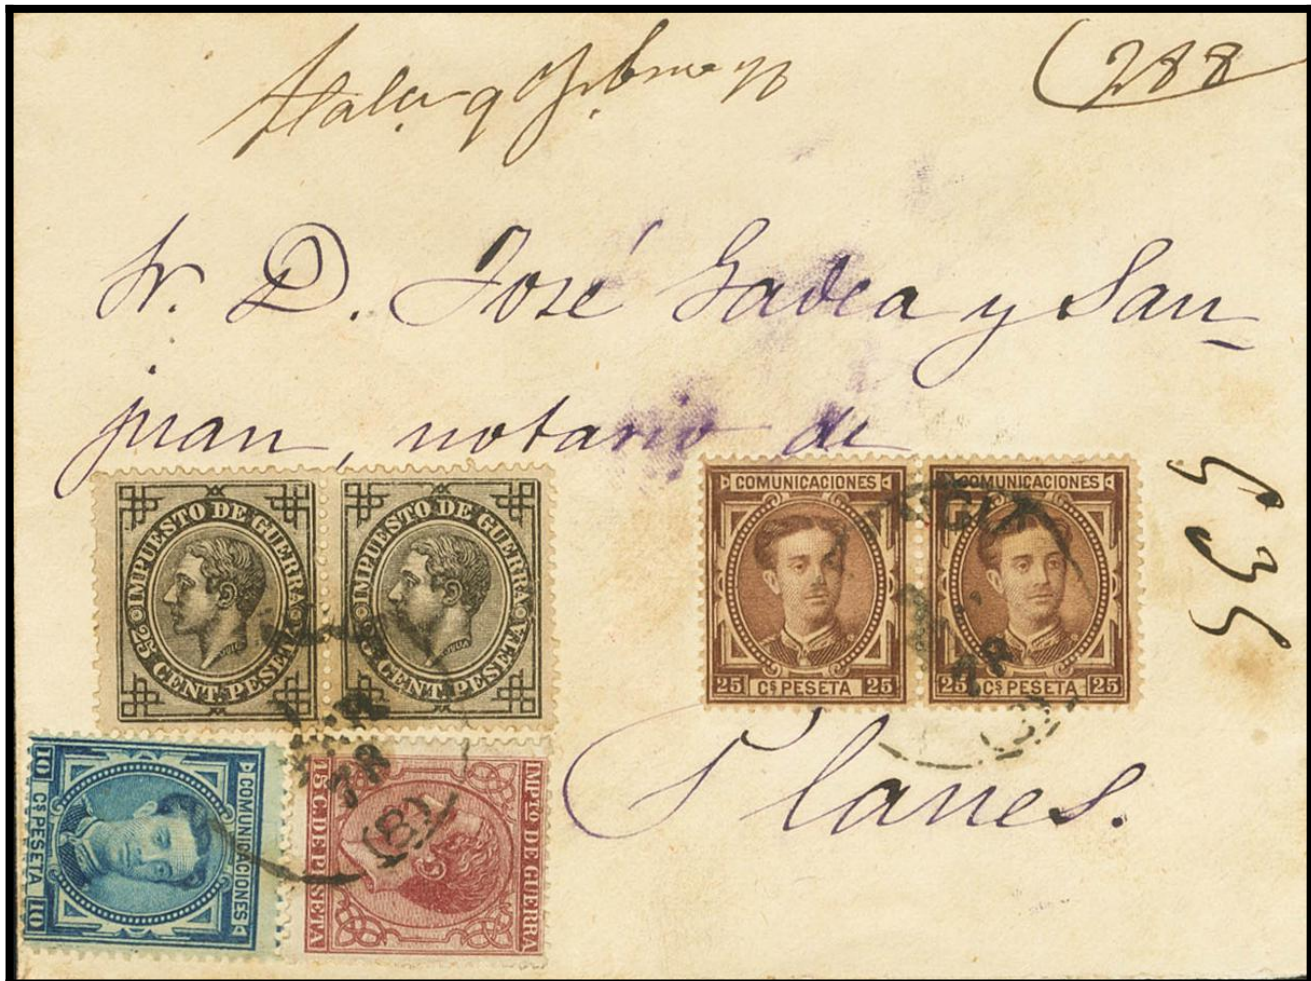 288
Sr. D. José Gadea y San-
juan, notario de
Planes.
535
IMPUESTO DE GUERRA
25 CENT. PESETA
IMPUESTO DE GUERRA
CENT. PESETA
COMUNICACIONES
25 Cs PESETA 25
COMUNICACIONES
25 Cs PESETA 25
COMUNICACIONES
10 Cs PESETA 10
IMPTO DE GUERRA
15 C. DE PESETA
78
78
(8)